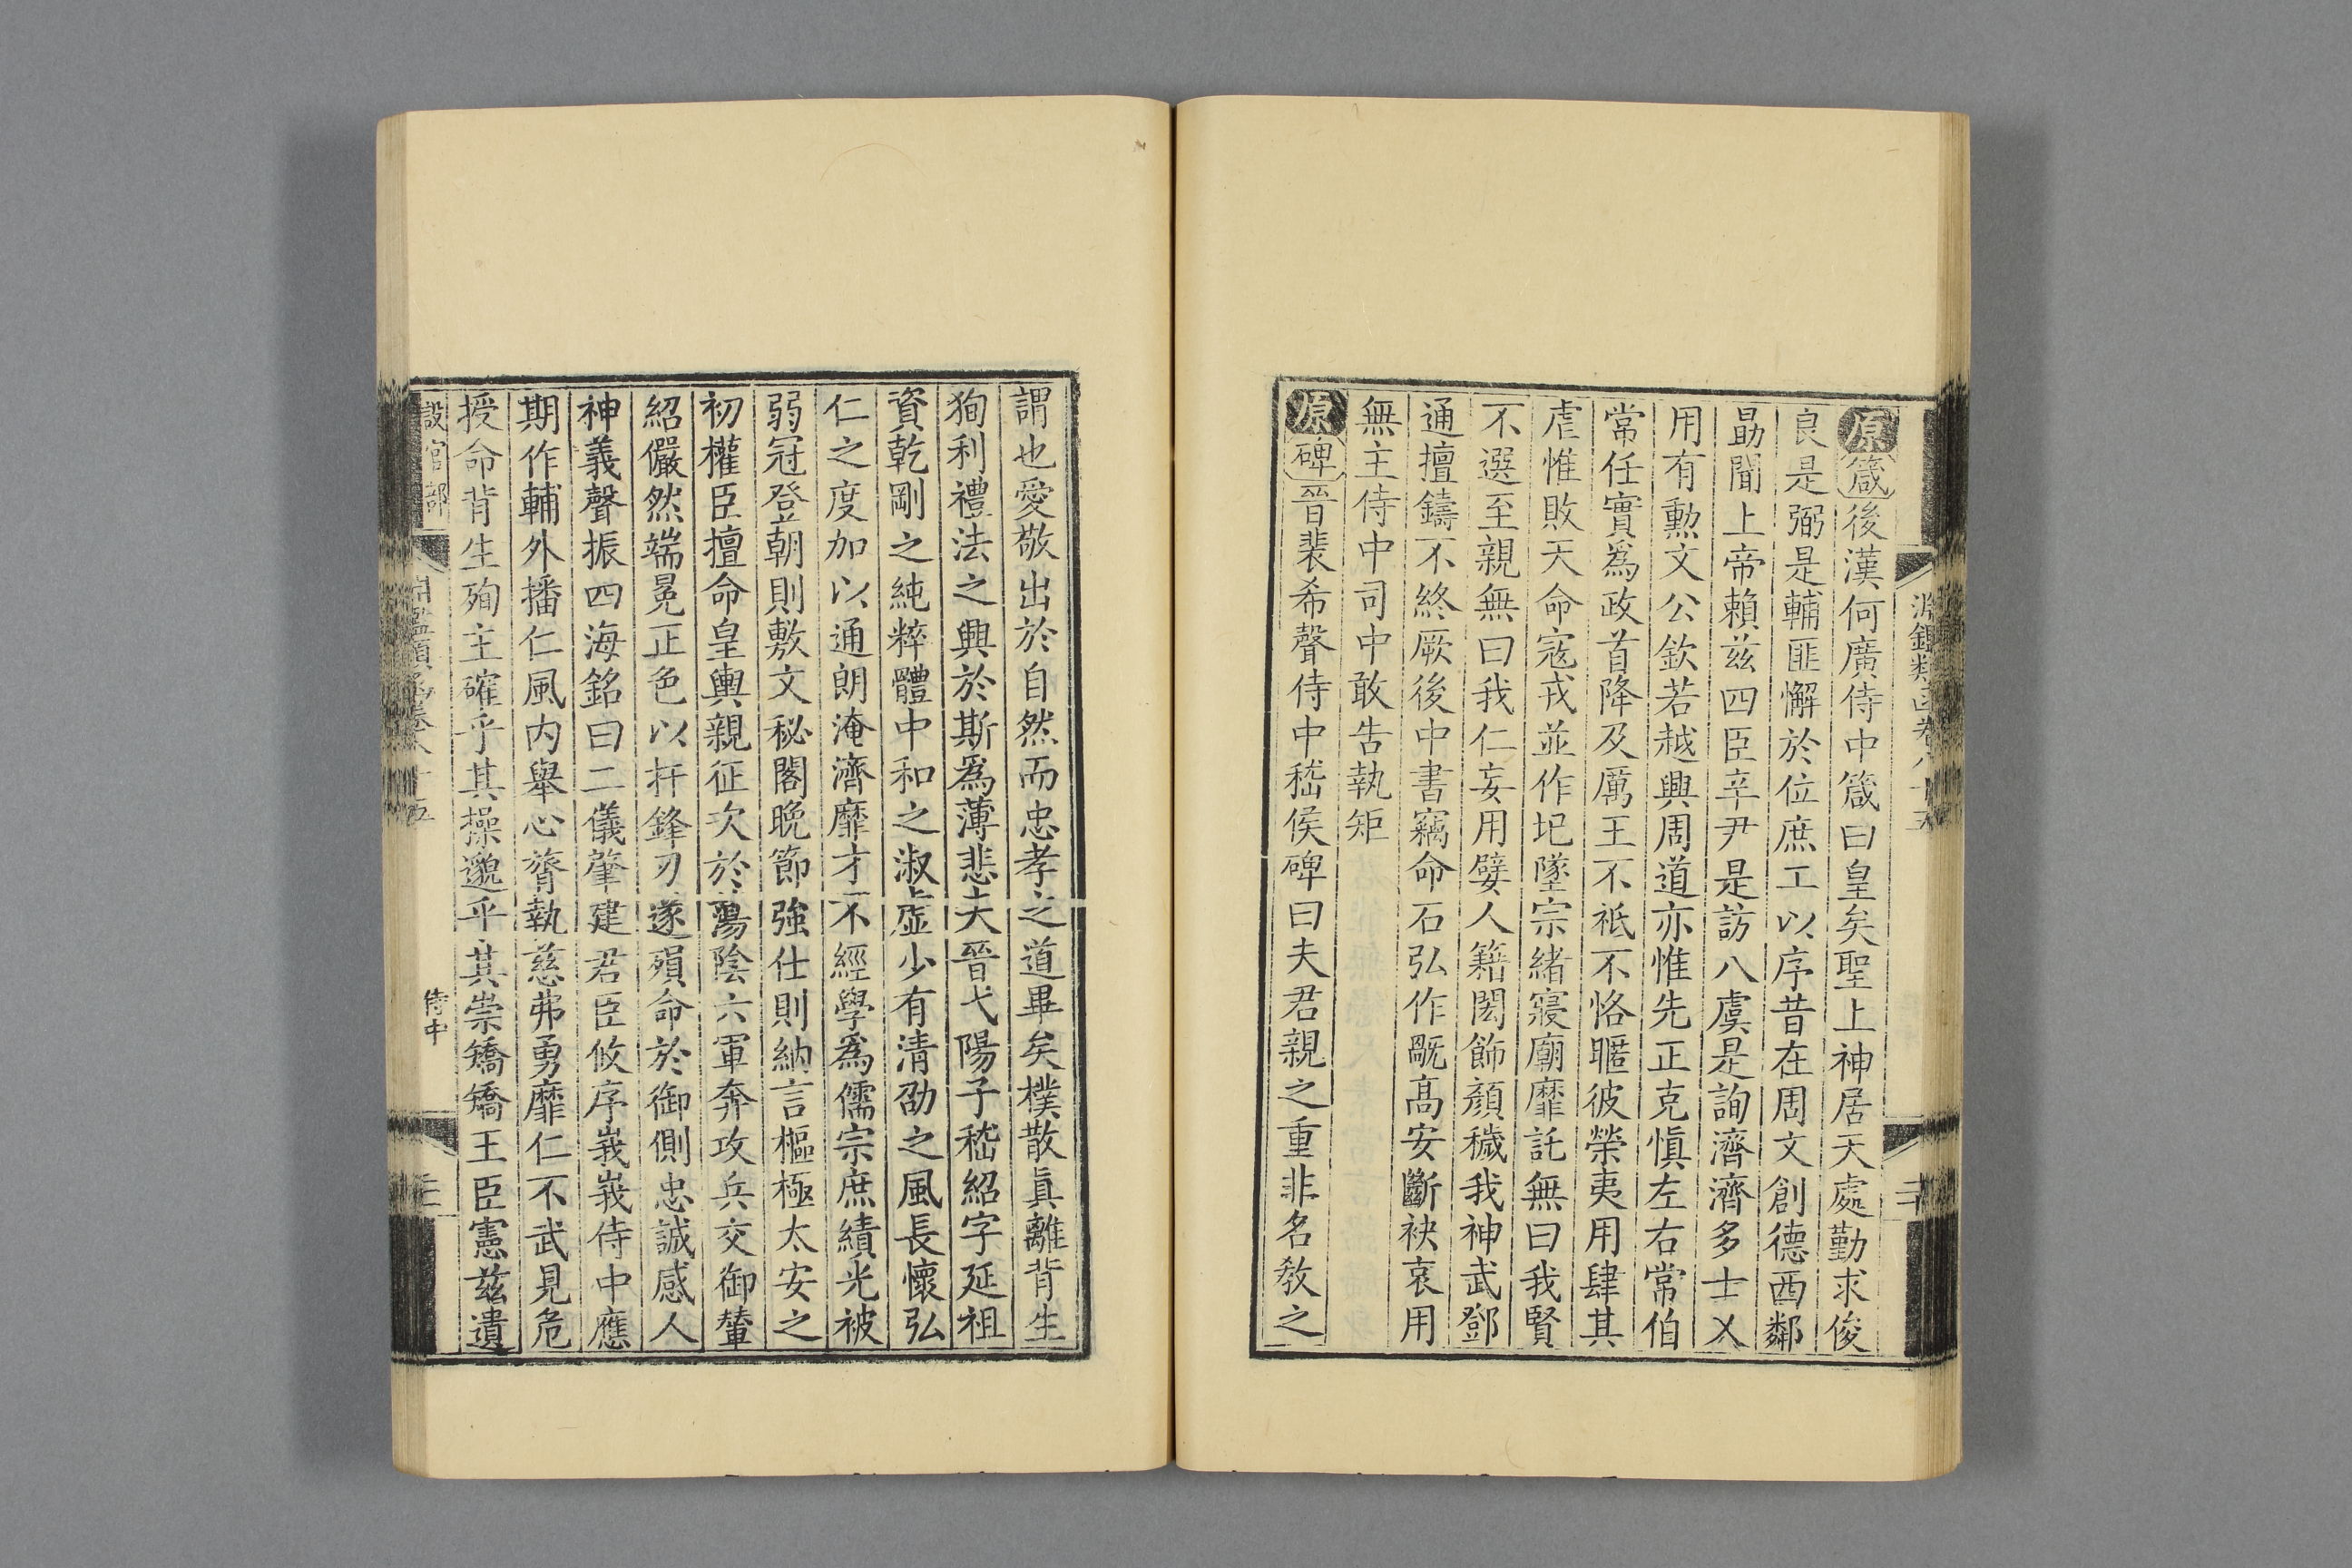 淵鑑類函卷八十五
二十
原箴後漢何廣侍中箴曰皇矣聖上神居天處勤求俊
良是弼是輔匪懈於位庶工以序昔在周文創德西鄰
勗聞上帝賴茲四臣辛尹是訪八虞是詢濟濟多士乂
用有勲文公欽若越興周道亦惟先正克慎左右常伯
常任實爲政首降及厲王不祗不恪暱彼榮夷用肆其
虐惟敗天命寇戎並作圮墜宗緒寢廟靡託無曰我賢
不選至親無曰我仁妄用嬖人籍閎飾顏穢我神武鄧
通擅鑄不終厥後中書竊命石弘作敺髙安斷袂哀用
無主侍中司中敢告執矩
原碑晉裴希聲侍中嵇侯碑曰夫君親之重非名教之
謂也愛敬出於自然而忠孝之道畢矣樸散眞離背生
狥利禮法之興於斯爲薄悲夫晉弋陽子嵇紹字延祖
資乾剛之純粹體中和之淑虛少有清劭之風長懷弘
仁之度加以通朗淹濟靡才不經學爲儒宗庶績光被
弱冠登朝則敷文秘閣晩節強仕則納言樞極太安之
初權臣擅命皇輿親征次於蕩陰六軍奔攻兵交御輦
紹儼然端冕正色以扞鋒刃遂殞命於御側忠誠感人
神義聲振四海銘曰二儀肇建君臣攸序峩峩侍中應
期作輔外播仁風内舉心膂執慈弗勇靡仁不武見危
授命背生殉主確乎其操邈乎其崇矯矯王臣憲茲遺
設官部
侍中